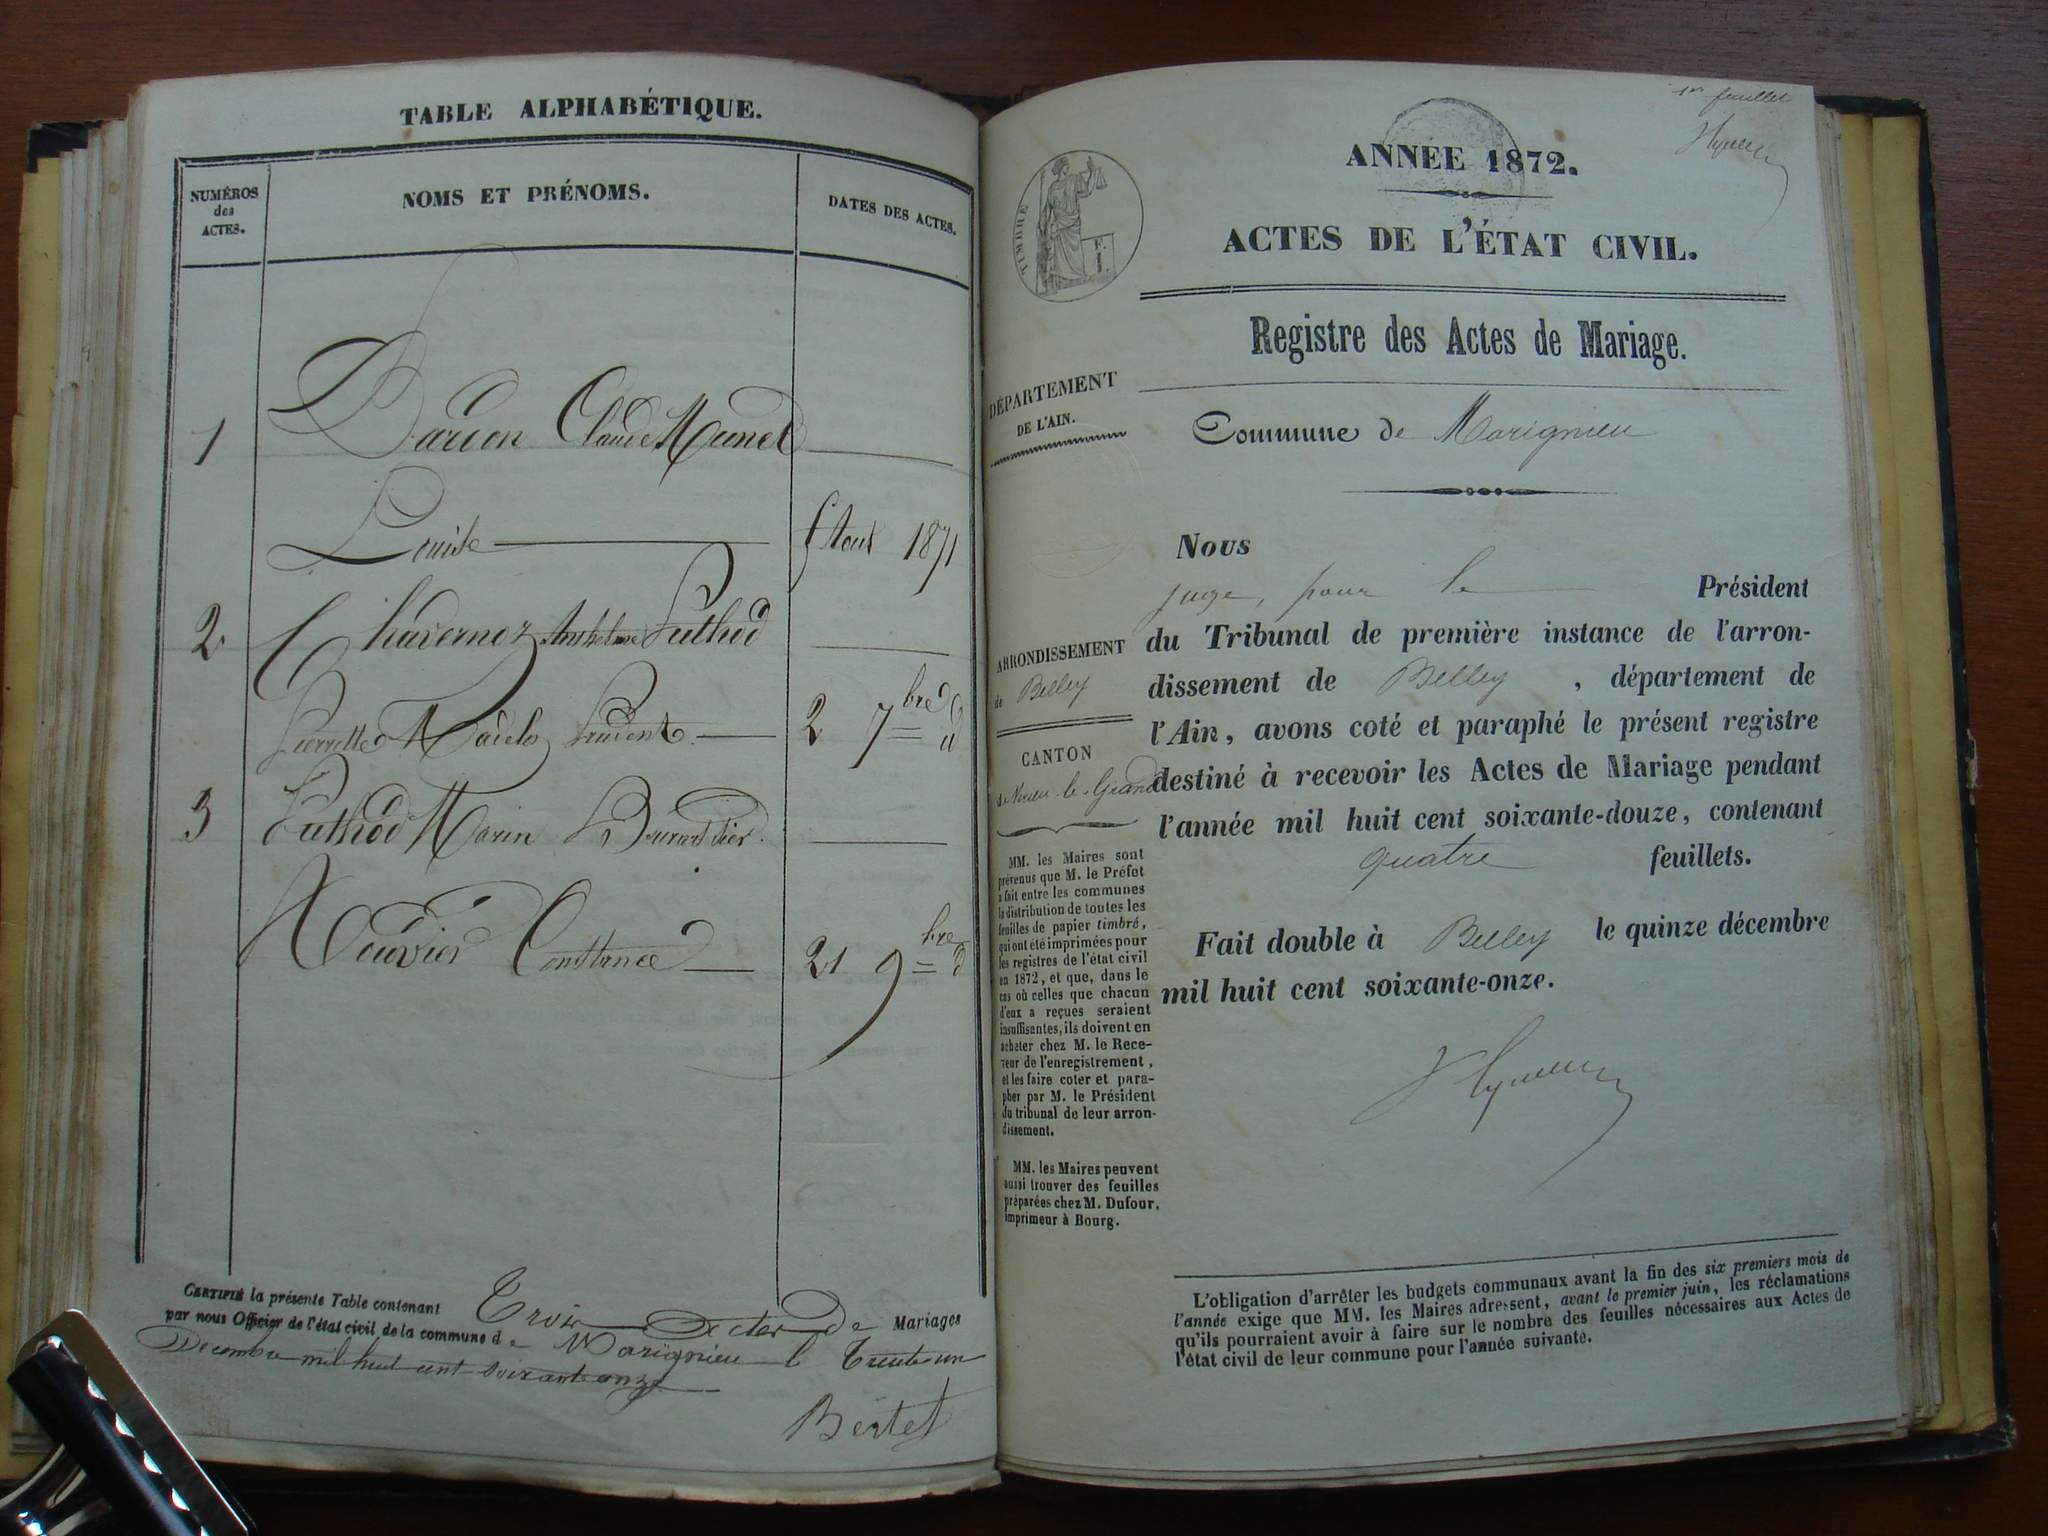 TABLE ALPHABÉTIQUE.
NUMÉROS
des
ACTES.
NOMS ET PRÉNOMS.
DATES DES ACTES.
1 Claude
Louise Août 1871
2 Chavernoz Anthelme Puthod
Pierrette 2 7bre d
3 Puthod Marin
Constance 21 9bre d
CERTIFIÉ la présente Table contenant Trois Actes De Mariages
par nous Officier de l'état civil de la commune de Marignieu le Trente un
Décembre mil huit cent soixante onze
Bertet
1er feuillet
ANNÉE 1872.
ACTES DE L'ÉTAT CIVIL.
TIMBRE
Registre des Actes de Mariage.
DÉPARTEMENT
DE L'AIN.
Commune de Marignieu
ARRONDISSEMENT
de Belley
CANTON
de Virieu-le-Grand
MM. les Maires sont
prévenus que M. le Préfet
a fait entre les communes
la distribution de toutes les
feuilles de papier timbré,
qui ont été imprimées pour
les registres de l'état civil
en 1872, et que, dans le
cas où celles que chacun
d'eux a reçues seraient
insuffisantes, ils doivent en
acheter chez M. le Rece-
veur de l'enregistrement,
et les faire coter et para-
pher par M. le Président
du tribunal de leur arron-
dissement.
MM. les Maires peuvent
aussi trouver des feuilles
préparées chez M. Dufour,
imprimeur à Bourg.
Nous
juge, pour le Président
du Tribunal de première instance de l'arron-
dissement de Belley, département de
l'Ain, avons coté et paraphé le présent registre
destiné à recevoir les Actes de Mariage pendant
l'année mil huit cent soixante-douze, contenant
quatre feuillets.
Fait double à Belley le quinze décembre
mil huit cent soixante-onze.
L'obligation d'arrêter les budgets communaux avant la fin des six premiers mois de
l'année exige que MM. les Maires adressent, avant le premier juin, les réclamations
qu'ils pourraient avoir à faire sur le nombre des feuilles nécessaires aux Actes de
l'état civil de leur commune pour l'année suivante.